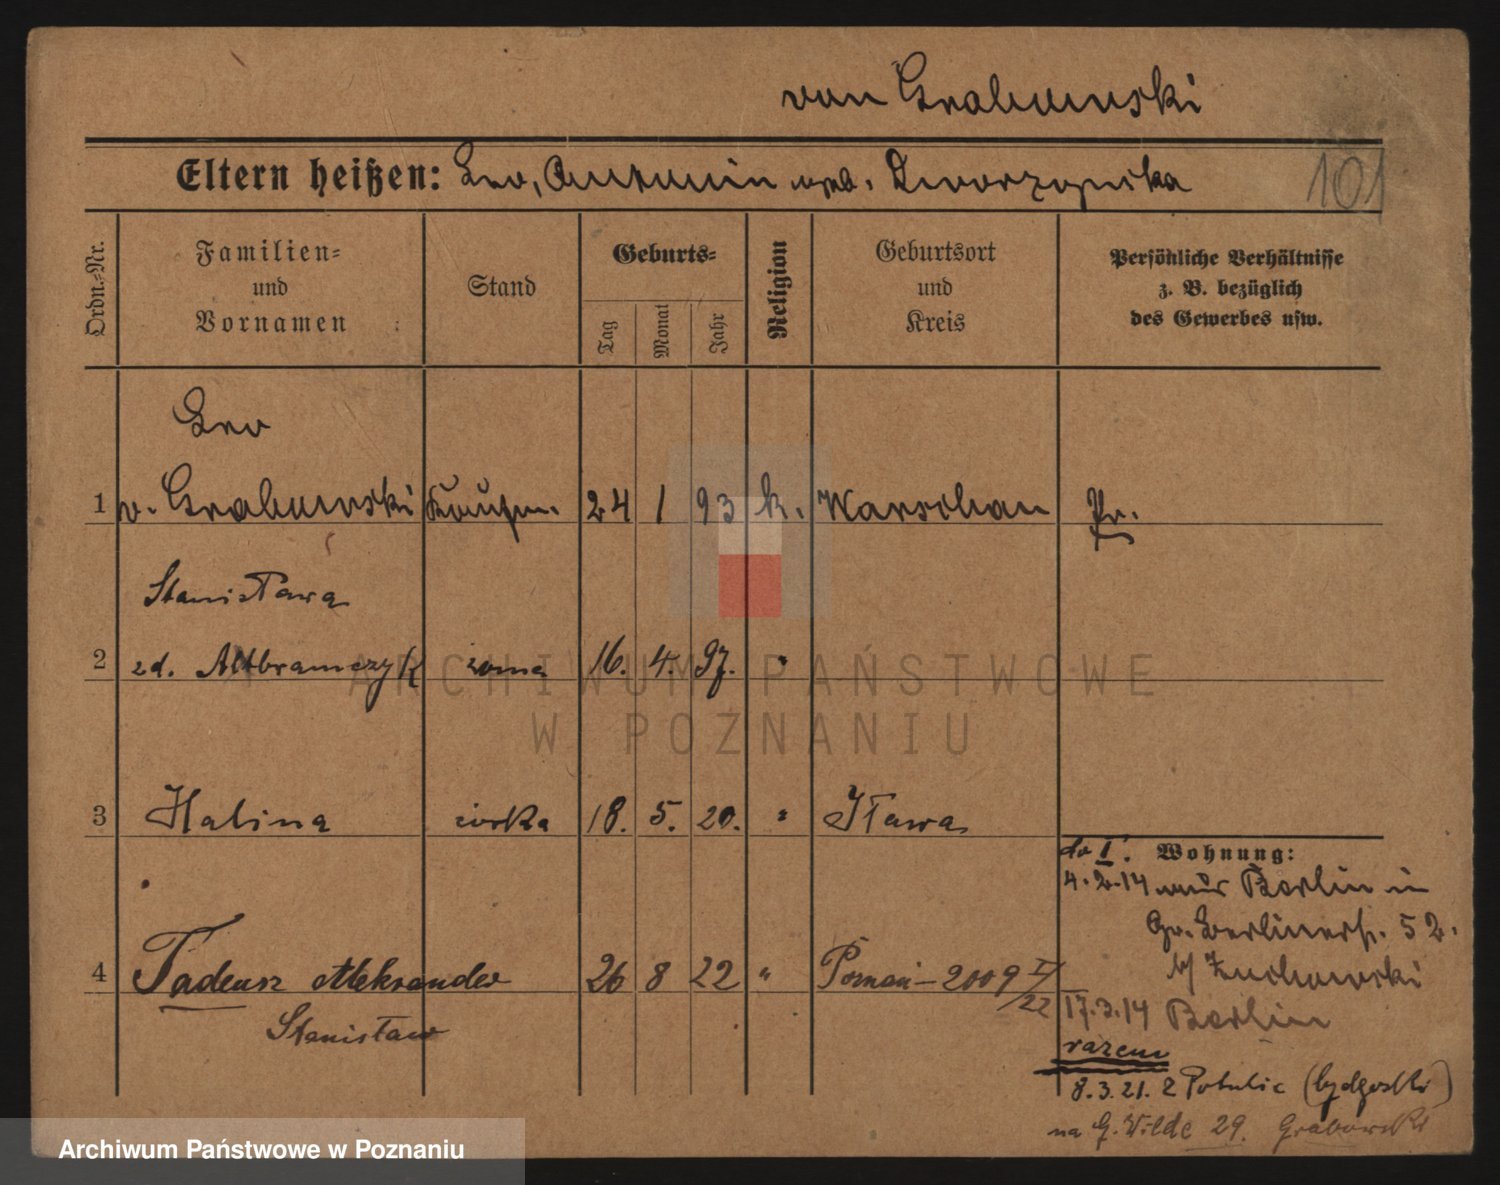 von Grabowski
Eltern heißen: Leo, Antonin geb. Dworzynska
101
Ordn.-Nr.
Familien-
und
Vornamen
Stand
Geburts-
Tag
Monat
Jahr
Religion
Geburtsort
und
Kreis
Persönliche Verhältnisse
z. B. bezüglich
des Gewerbes usw.
Leo
1 v. Grabowski Kaufm. 24 1 93 k. Warschau Pr.
Stanisława
2 zd. żona 16. 4. 97. "
3 Halina córka 18. 5. 20. " Iława
do I. Wohnung:
4.2.14 aus Berlin in
Gr. Berlinerstr. 52.
b/ Zuchowski
4 Tadeusz Aleksander 26 8 22 " Poznań – 2009 I/22
Stanisław
17.3.14 Berlin
razem
8.3.21. z Potulic (bydgoski)
na G. Wilde 29. Grabowski
ARCHIWUM PAŃSTWOWE
W POZNANIU
Archiwum Państwowe w Poznaniu